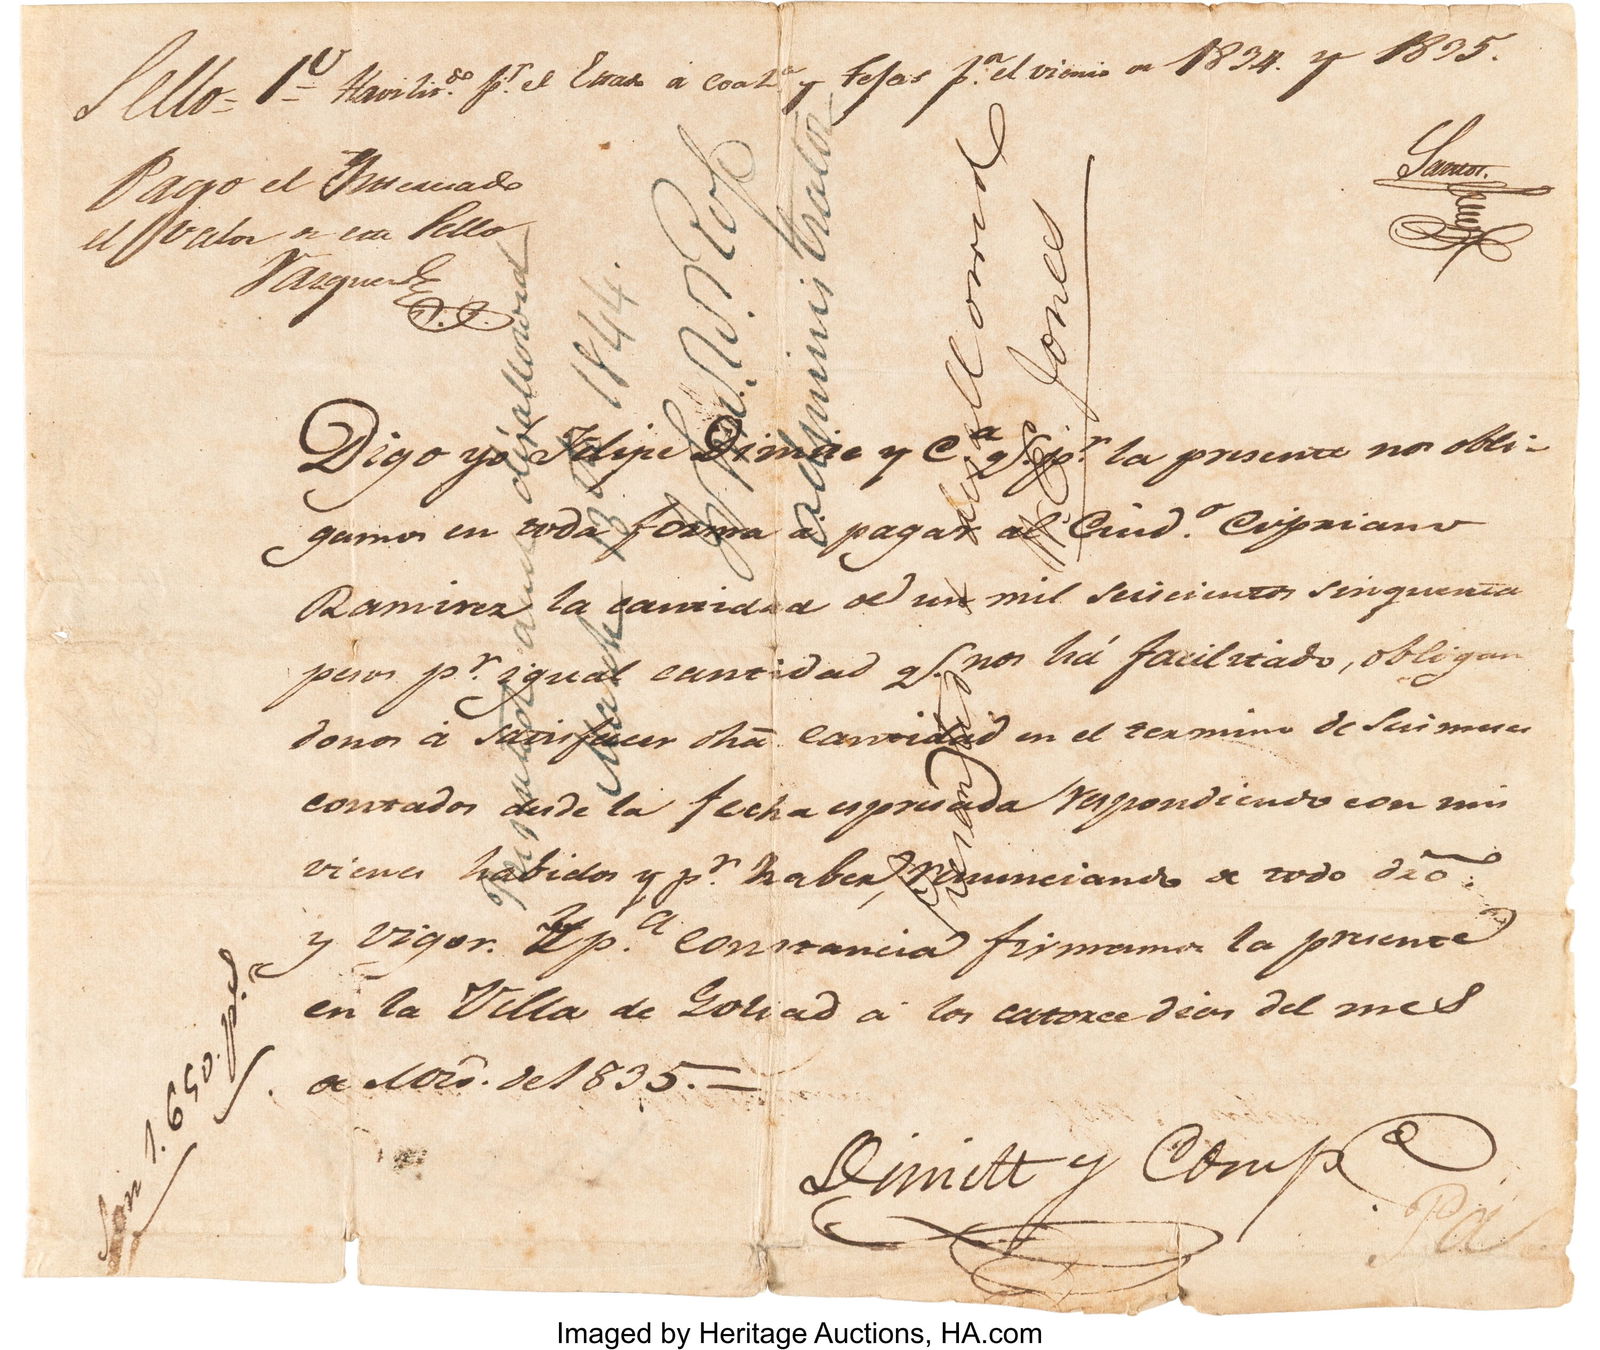 Sello = 1º Havilit.do pr. el Estado d Coah.a y Tejas p.a el vienio de 1834. y 1835.
Santos.
Pago el Interesado
el valor de este Sello
Vazquez
Digo yo Felipe Dimite y C.a q.e pr. la presente nos obli-
gamos en toda forma a pagar al Ciud.o Cipriano
Ramirez la cantidad de un mil seiscientos sinquenta
pesos pr. igual cantidad q.e nos há facilitado, obligan
donos á satisfacer dha cantidad en el termino de seis meses
contados desde la fecha espresada respondiendo con mis
vienes habidos y pr. haber, renunciando de todo dro.
y vigor. Y p.a constancia firmamos la presente
en la Villa de Goliad a los catorce dias del mes
de Mzo. de 1835. —
Dimitt y Comp.a
Pd
Son 1.650. p.s
Presented and disallowed
March 13th 1844.
J. W. Rose
Administrator
disallowed
Jones